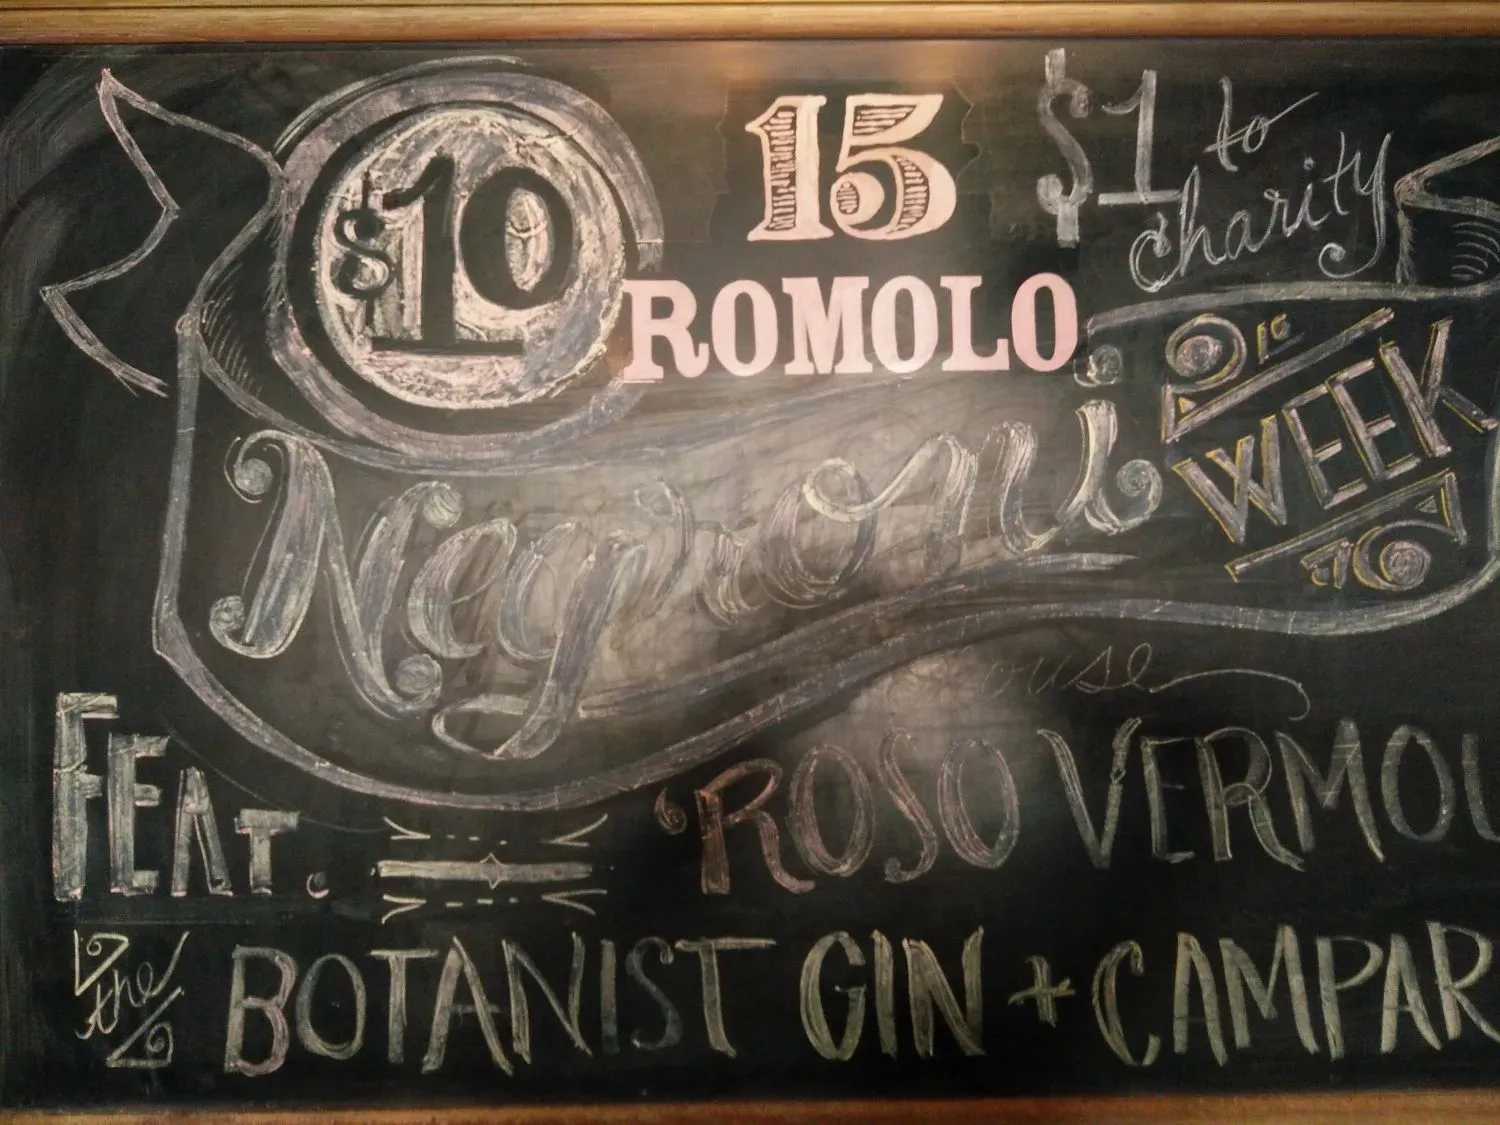 $10
15
ROMOLO
$1 to
charity
Negroni
WEEK
FEAT.
'ROSO VERMOU
the BOTANIST GIN + CAMPAR